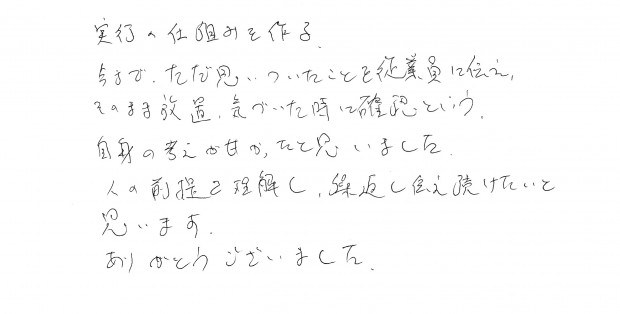 実行の仕組みを作る.
今まで、ただ思いついたことを従業員に伝え,
そのまま放置、気づいた時に確認という.
自身の考えが甘かったと思いました.
人の前提を理解し、繰返し伝え続けたいと
思います.
ありがとうございました.